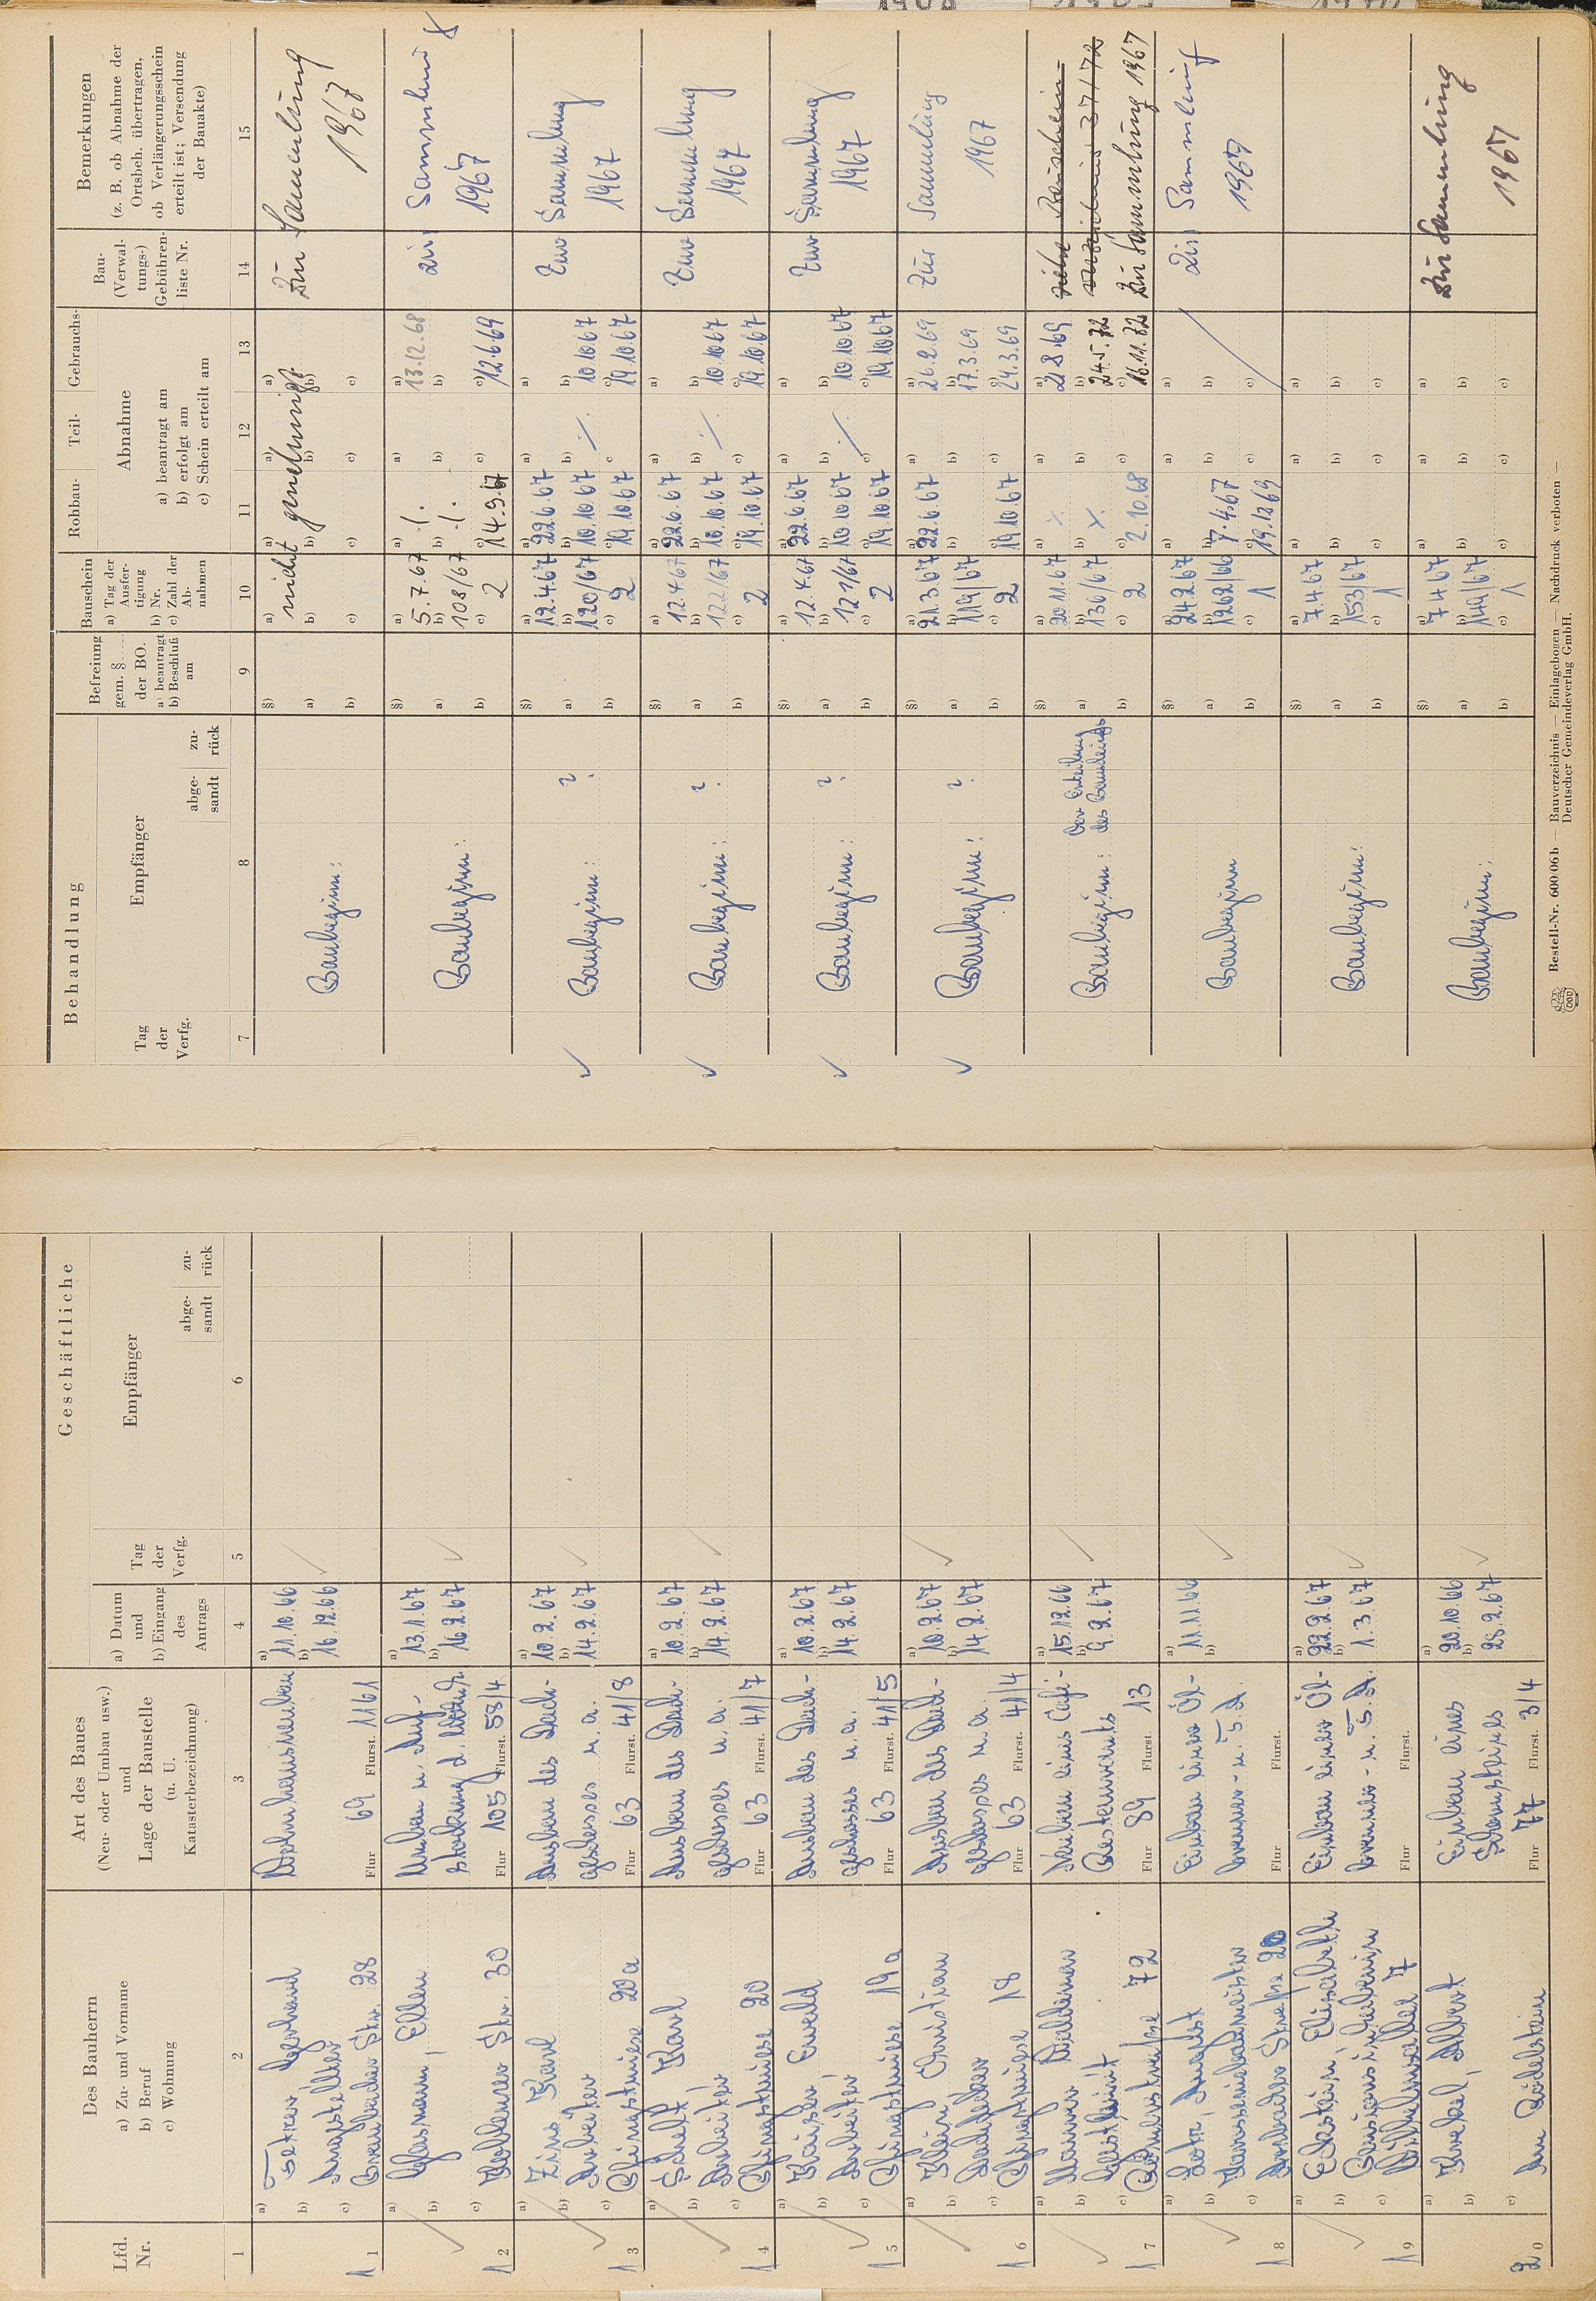 Geschäftliche
Lfd.
Nr.
Des Bauherrn
a) Zu- und Vorname
b) Beruf
c) Wohnung
Art des Baues
(Neu- oder Umbau usw.)
und
Lage der Baustelle
(u. U.
Katasterbezeichnung)
a) Datum
und
b) Eingang
des
Antrags
Tag
der
Verfg.
Empfänger
abge-
sandt
zu-
rück
1 2 3 4 5 6
a) Gerhard
b) Angestellter
c) Str. 28
Wohnhausneubau
Flur 69 Flurst. 1161
a) 11.10.66
b) 16.12.66
11
a) Ellen
b)
c) Koblenzer Str. 30
Umbau u. Auf-
stockung d.
Flur 105 Flurst. 58/4
a) 13.1.67
b) 16.2.67
12
a) Zins Karl
b) Arbeiter
c) 20a
Ausbau des Dach-
geschosses u. a.
Flur 63 Flurst. 41/8
a) 10.2.67
b) 14.2.67
13
a) Karl
b) Arbeiter
c) 20
Ausbau des Dach-
geschosses u. a.
Flur 63 Flurst. 41/7
a) 10.2.67
b) 14.2.67
14
a) Ewald
b) Arbeiter
c) 19a
Ausbau des Dach-
geschosses u. a.
Flur 63 Flurst. 41/5
a) 10.2.67
b) 14.2.67
15
a) Klein Christian
b) Dachdecker
c) 18
Ausbau des Dach-
geschosses u. a.
Flur 63 Flurst. 41/4
a) 10.2.67
b) 14.2.67
16
a)
b)
c) 72
Neubau eines Café-
Restaurants
Flur 89 Flurst. 13
a) 15.12.66
b) 9.2.67
17
a) August
b) Karosseriebaumeister
c) Straße 20
Einbau einer Öl-
brenner- u. T. A.
Flur Flurst.
a) 11.11.66
b)
18
a) Eckstein, Elisabeth
b)
c) 7
Einbau einer Öl-
brenner- u. T. A.
Flur Flurst.
a) 22.2.67
b) 1.3.67
19
a) Albert
b)
c) Am Rödelstein
Einbau eines
Schornsteines
Flur 77 Flurst. 3/4
a) 20.10.66
b) 28.2.67
20
Behandlung
Tag
der
Verfg.
Empfänger
abge-
sandt
zu-
rück
Befreiung
gem. §
der BO.
a) beantragt
b) Beschluß
am
Bauschein
a) Tag der
Ausfer-
tigung
b) Nr.
c) Zahl der
Ab-
nahmen
Rohbau- Teil- Gebrauchs-
Abnahme
a) beantragt am
b) erfolgt am
c) Schein erteilt am
Bau-
(Verwal-
tungs-)
Gebühren-
liste Nr.
Bemerkungen
(z. B. ob Abnahme der
Ortsbeh. übertragen,
ob Verlängerungsschein
erteilt ist; Versendung
der Bauakte)
7 8 9 10 11 12 13 14 15
Baubeginn:
nicht genehmigt
Zur Sammlung
1967
Baubeginn:
a) 5.7.67
b) 108/67
c) 2
a) ./.
b) ./.
c) 14.9.67
a) 13.12.68
b)
c) 12.6.69
Zur Sammlung
1967
Baubeginn: ?
a) 12.4.67
b) 120/67
c) 2
a) 22.6.67
b) 10.10.67
c) 19.10.67
./.
b) 10.10.67
c) 19.10.67
Zur Sammlung
1967
Baubeginn: ?
a) 12.4.67
b) 122/67
c) 2
a) 22.6.67
b) 10.10.67
c) 19.10.67
./.
b) 10.10.67
c) 19.10.67
Zur Sammlung
1967
Baubeginn: ?
a) 12.4.67
b) 121/67
c) 2
a) 22.6.67
b) 10.10.67
c) 19.10.67
./.
b) 10.10.67
c) 19.10.67
Zur Sammlung
1967
Baubeginn: ?
a) 21.3.67
b) 119/67
c) 2
a) 22.6.67
b)
c) 19.10.67
a) 26.2.69
b) 17.3.69
c) 24.3.69
Zur Sammlung
1967
Baubeginn: Vor Erteilung
des Bauscheins
a) 20.11.67
b) 136/67
c) 2
a) ./.
b) ./.
c) 2.10.68
a) 21.8.69
b) 24.5.72
c) 16.11.72
siehe Bauschein-
verzeichnis 37/72
Zur Sammlung 1967
Baubeginn
a) 24.2.67
b) 1262/66
c) 1
b) 7.4.67
c) 19.12.69
Zur Sammlung
1967
Baubeginn:
a) 7.4.67
b) 153/67
c) 1
Baubeginn:
a) 7.4.67
b) 149/67
c) 1
Zur Sammlung
1967
Bestell-Nr. 600 06b — Bauverzeichnis — Einlagebogen — Nachdruck verboten —
Deutscher Gemeindeverlag GmbH.